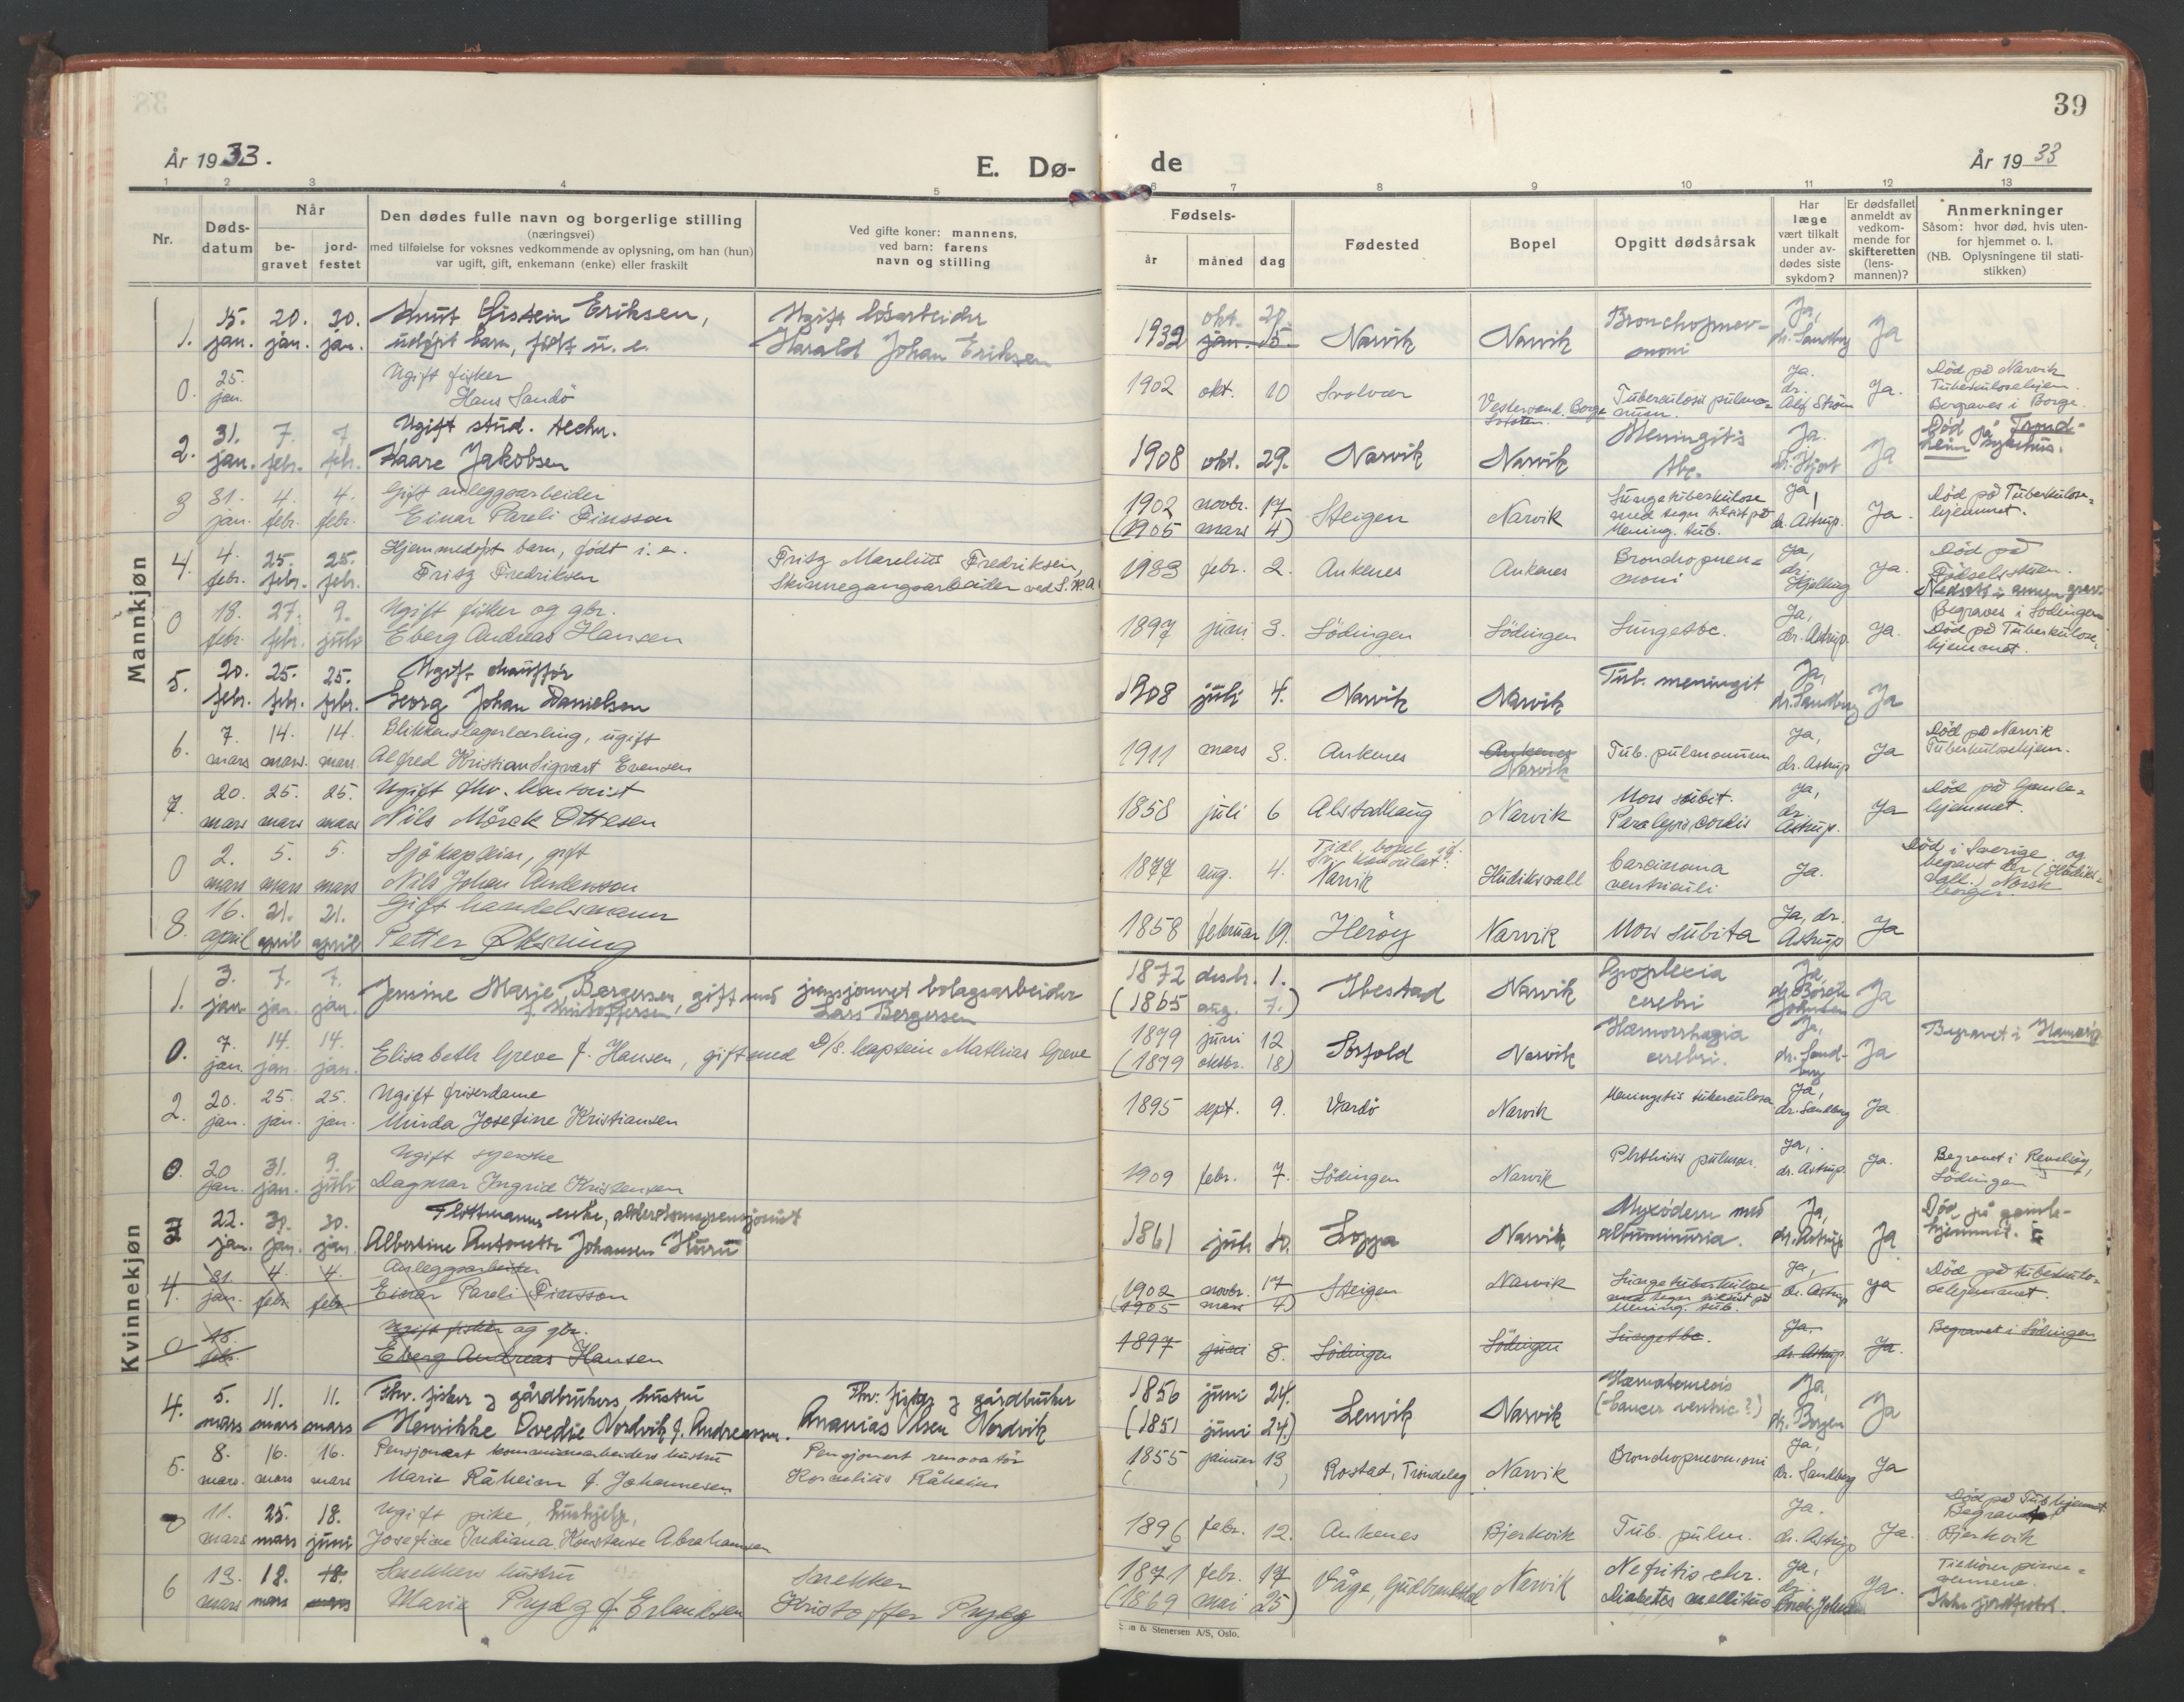 39
År 1933.
E. Dø-
de
År 1933
1 2 3 4 5 6 7 8 9 10 11 12 13
Nr.
Døds-
datum
Når
be-
gravet
jord-
festet
Den dødes fulle navn og borgerlige stilling
(næringsvei)
med tilføielse for voksnes vedkommende av oplysning, om han (hun)
var ugift, gift, enkemann (enke) eller fraskilt
Ved gifte koner: mannens,
ved barn: farens
navn og stilling
Fødsels-
år
måned
dag
Fødested
Bopel
Opgitt dødsårsak
Har
læge
vært tilkalt
under av-
dødes siste
sykdom?
Er dødsfallet
anmeldt av
vedkom-
mende for
skifteretten
(lens-
mannen)?
Anmerkninger
Såsom: hvor død, hvis uten-
for hjemmet o. l.
(NB. Oplysningene til stati-
stikken)
Mannkjøn
1. 15. jan. 20. jan. 30. jan.
Knut Eistein Eriksen,
udøpt barn, født u. e.
Ugift løsarbeider
Harald Johan Eriksen
1932 okt. 28. jan. 15. Narvik Narvik
Bronchopnev-
moni
Ja, dr. Sandberg Ja
0. 25. jan.
Ugift fisker
Hans Sandö
1902 okt. 10 Svolvær
Borge
Tuberculosis pulmo-
num.
Ja. dr. Alf Strøm Ja.
Død på Narvik
Tuberkulosehjem.
Begraves i Borge.
2. 31. jan. 7. febr. 7. febr.
Ugift stud. techn.
Kaare Jakobsen
1908 okt. 29. Narvik Narvik
Meningitis
tbc.
Ja. dr. Hjort Ja
Død på Trond-
heim sykehus.
3 31. jan. 4. febr. 4. febr.
Gift anleggsarbeider
Einar Pareli Finsson
1902 novbr. 17
(1905 mars 4)
Steigen Narvik
Lungetuberkulose
med tegn tilsist på
Mening. tub.
Ja, dr. Astrup. Ja.
Død på Tuberkulose-
hjemmet.
4. 4. febr. 25. febr. 25. febr.
Hjemmedøpt barn, født i. e.
Fritz Fredriksen
Fritz Marelius Fredriksen,
Skinnegangsarbeider ved
1933 febr. 2. Ankenes Ankenes
Bronchopnev-
moni
Ja, dr. Kjelling Ja.
Død på
Fødselsstuen.
0 18. febr. 27. febr. 9. juli
Ugift fisker og gbr.
Eberg Andreas Hansen
1897 juni 3. Lödingen Lödingen Lungetbc.
Ja, dr. Astrup. Ja.
Begraves i Lödingen
Død på Tuberkulose-
hjemmet.
5. 20. febr. 25. febr. 25. febr.
Ugift chauffør
Georg Johan Danielsen
1908 juli 4. Narvik Narvik Tub. meningit
Ja, dr. Sandberg Ja
6. 7. mars 14. mars. 14. mars.
Blikkenslagerlærling, ugift
Alfred Kristian Sigvart Evensen
1911 mars 3. Ankenes Ankenes
Narvik
Tub. pulmonum
Ja, dr. Astrup Ja
Død på Narvik
Tuberkulosehjem.
7. 20. mars 25. mars 25. mars
Ugift fhv. kontorist
Nils Mörck Ottesen
1858 juli 6 Alstadhaug Narvik
Mors subit.
Paralysis cordis
Ja, dr. Astrup. Ja
Død på Gamle-
hjemmet.
0 2. mars 5. mars 5. mars
Sjökaptein, gift
Nils Johan Andersson
1877 aug. 4.
Tidl. bopel
Narvik Hudiksvall
Carcinoma
ventriculi
Ja.
Død i Sverige og
begravet der (Hudiks-
vall.) Norsk
borger.
8. 16. april 21. april 21. april
Gift handelsmann
Petter
1858 februar 19. Herøy Narvik Mors subita
Ja, dr. Astrup Ja
Kvinnekjøn
1. 3. jan. 7. jan. 7. jan.
Jensine Marie Bergersen, gift med pensjonert bolagsarbeider
f. Kristoffersen
Lars Bergersen
1872 desbr. 1.
(1865 aug. 7.)
Ibestad Narvik
Apoplexia
cerebri
Ja Johnsen Ja
0. 7. jan. 14. jan. 14. jan.
Elisabeth Greve f. Hansen, gift med D/s. kaptein Mathias Greve
1879 juni 12
(1879 oktbr. 18)
Sørfold Narvik
Hæmorrhagia
cerebri.
Ja, dr. Sand-
berg Ja
Begravet i Hamarøy
2. 20. jan. 25. jan. 25. jan.
Ugift friserdame
Minda Josefine Kristiansen
1895 sept. 9. Vardö Narvik Meningitis tuberculosa
Ja, dr. Sandberg Ja
0. 20 jan. 31. jan. 9. juli
Ugift syerske
Dagmar Ingrid Kristensen
1909 febr. 7. Lödingen Narvik Phthisis pulmon.
Ja, dr. Astrup. Ja.
Begravet i
Lödingen
3 22. jan. 30. jan. 30. jan.
Flottmanns enke, alderdomspensjonist
Albertine Antonette Johansen Huru
1861 juli Loppa Narvik
Myxödem med
albuminuria.
Ja, dr. Astrup Ja
Død på gamle-
hjemmet.
4. 31. jan. 4. febr. 4. febr.
Anleggsarbeider
Einar Pareli Finsson
1902 novbr. 17
(1905 mars 4)
Steigen Narvik
Lungetuberkulose
med tegn tilsist på
Mening. tub.
Ja, dr. Astrup Ja
Død på tuberkulo-
sehjemmet.
0 18. febr.
Ugift fisker og gbr.
Eberg Andreas Hansen
1897 juni 3. Lödingen Lödingen Lungetbc.
Ja. dr. Astrup. Ja.
Begravet i Lödingen
4. 5. mars 11. mars 11. mars
Fhv. fisker og gårdbrukers hustru
Henrikke Ovedie Nordvik f. Andreassen.
Fhv. fisker og gårdbruker
Ananias Olsen Nordvik
1856 juni 24.
(1851 juni 24.)
Lenvik Narvik
Hæmatemesis
(Cancer ventric?)
Ja, dr. Borgen Ja
5. 8. mars. 16. mars 16. mars
Pensjonert kommunearbeiders hustru
Marie Råheim f. Johannesen
Pensjonert renovatør
Kornelius Råheim
1855 januar 13
( )
Rostad, Tröndelag Narvik Bronchopnevmoni
Ja, Dr. Sandberg Ja
0 11. mars 25. mars 18. juni
Ugift pike, hushjelp,
Josefine Indiana Konstanse Abrahamsen
1896 febr. 12. Ankenes Bjerkvik Tub. pulm.
Ja. dr. Astrup Ja.
Død på Tub.hjemmet.
Begravet
Bjerkvik
6 13. mars 18. mars 18. mars
Snekkers hustru
Marie Prydz f. Erlandsen
Snekker
Kristoffer Prydz
1871 febr. 17
(1869 mai 25)
Våge, Gudbrandsdal Narvik
Nefritis chr.
Diabetes mellitus
Ja, dr. Johnsen Ja.
Tilhører pinse-
vennene.
Ikke jordfestet.
& Stenersen A/S, Oslo.